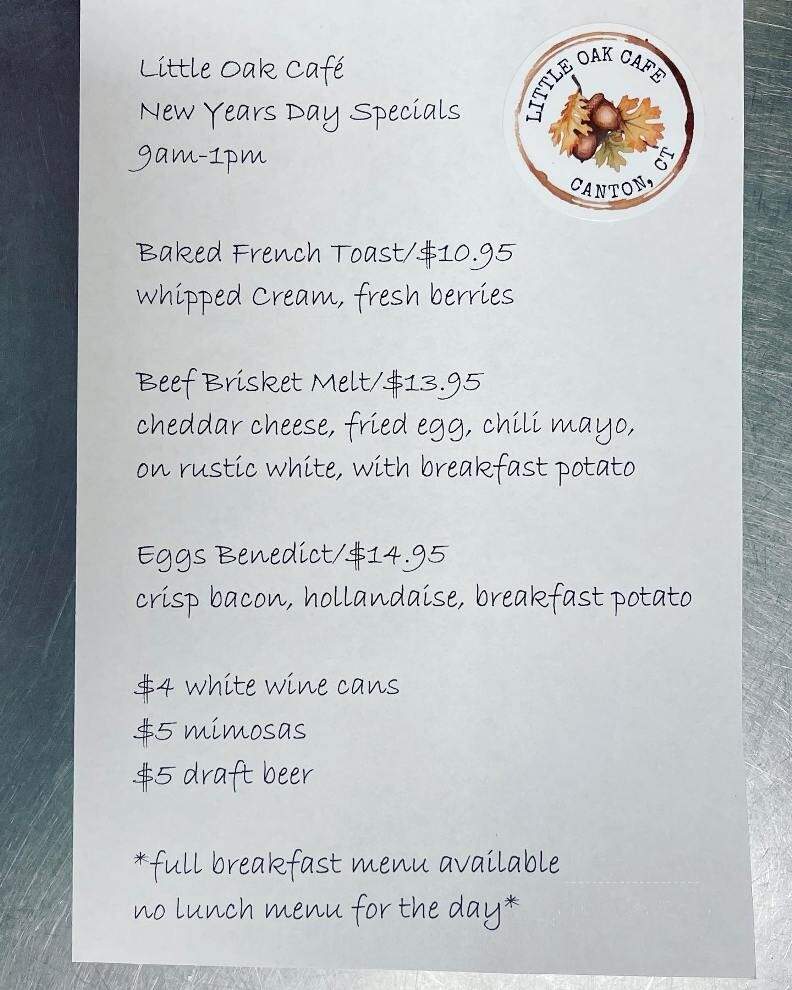 Little Oak Café
New Years Day Specials
9am-1pm
LITTLE OAK CAFE
CANTON, CT
Baked French Toast/$10.95
whipped Cream, fresh berries
Beef Brisket Melt/$13.95
cheddar cheese, fried egg, chili mayo,
on rustic white, with breakfast potato
Eggs Benedict/$14.95
crisp bacon, hollandaise, breakfast potato
$4 white wine cans
$5 mimosas
$5 draft beer
*full breakfast menu available
no lunch menu for the day*